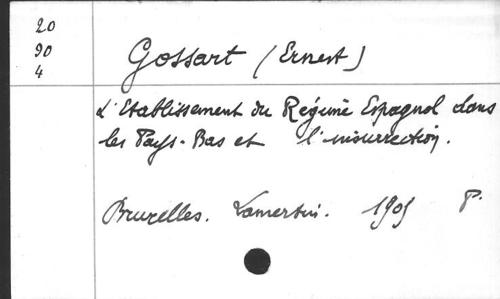 20
90
4
Gossart (Ernest)
L'Etablissement du Régime Espagnol dans
les Pays-Bas et l'insurrection.
Bruxelles. Lamertin. 1905 P.